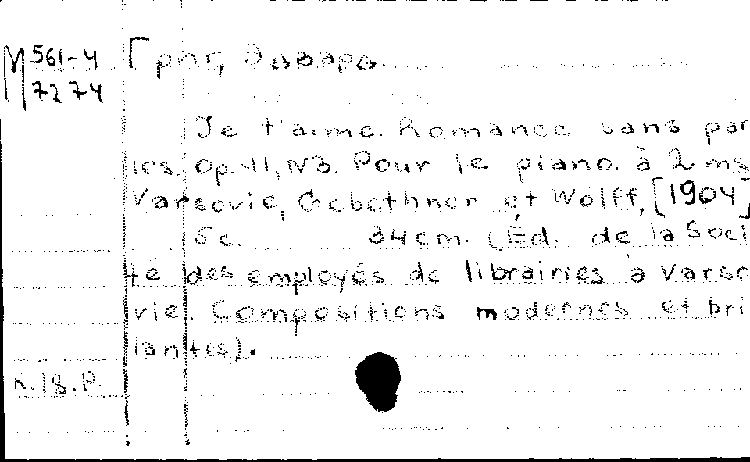 М 561-4 Григ, Эдвард
7274
Je t'aime. Romance sans paro
les. Op. 41, N3. Pour le piano à 2 ms
Varsovie, Gebethner et Wolff, [1904]
5 с. 34cm. (Éd. de la Soci
té des employés de librairies à Varso
vie. Compositions modernes et bri
lantes).
n.18.P.